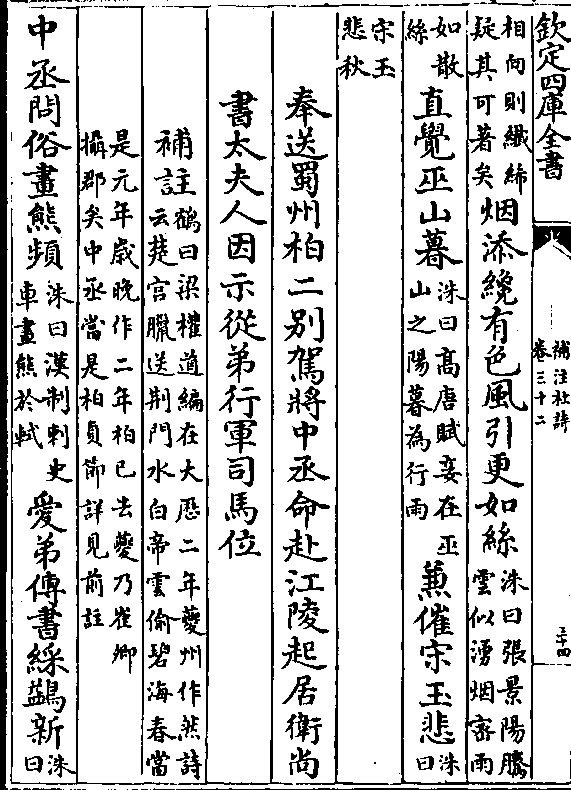 欽定四庫全書
補注杜詩
卷三十二
三十四
相向則纖絺
疑其可著矣
烟添纔有色風引更如絲
洙曰張景陽騰
雲似湧烟密雨
如散
絲
直覺巫山暮
洙曰高唐賦妾在巫
山之陽暮為行雨
兼催宋玉悲
洙曰
宋玉
悲秋
奉送蜀州柏二别駕將中丞命赴江陵起居衛尚
書太夫人因示從弟行軍司馬位
補註
鶴曰梁權道編在大厯二年夔州作然詩
云楚宫臘送荆門水白帝雲偷碧海春當
是元年歲晚作二年柏已去夔乃崔卿
攝郡矣中丞當是柏貞節詳見前註
中丞問俗畫熊頻
洙曰漢制刺史
車畫熊於軾
愛弟傳書綵鷁新
洙
曰